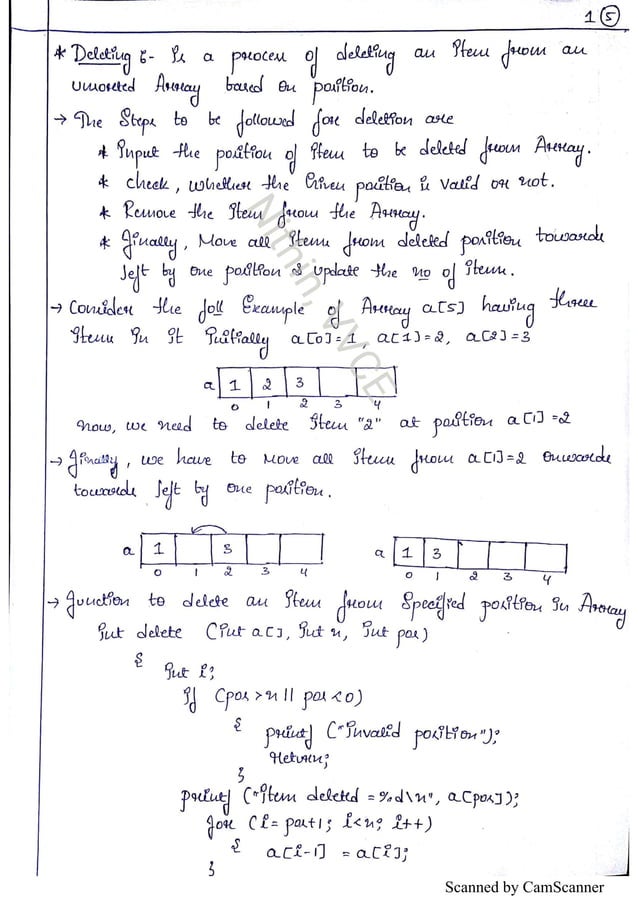 1 5
* Deleting :- Is a process of deleting an Item from an
unsorted Array based on position.
→ The Steps to be followed for deletion are
* Input the position of Item to be deleted from Array.
* check, whether the Given position is valid or not.
* Remove the Item from the Array.
* finally, Move all Items from deleted position towards
left by one position & update the no of Items.
→ Consider the foll Example of Array a[5] having three
Items In It Initially a[0]=1, a[1]=2, a[2]=3
a 1 2 3
0 1 2 3 4
Now, we need to delete Item "2" at position a[1]=2
→ finally, we have to Move all Items from a[1]=2 onwards
towards left by one position.
a 1 3 a 1 3
0 1 2 3 4 0 1 2 3 4
→ function to delete an Item from Specified position in Array
int delete (int a[], int n, int pos)
{
int i;
if (pos > n || pos < 0)
{ printf ("Invalid position");
return;
}
printf ("Item deleted = %d\n", a[pos]);
for (i = pos+1; i<n; i++)
{ a[i-1] = a[i];
}
Nithin, VVCE
Scanned by CamScanner